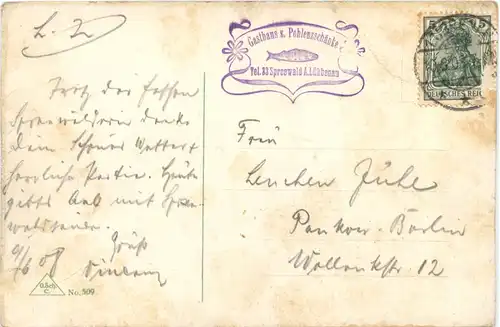 L. L
Gasthaus z. Pohlensschänke
Tel. 33 Spreewald A. Lübbenau
DEUTSCHES REICH
Trotz der feschen
Spreewälderin danke
dem schönes Wetter
herrliche Partie. Heute
gibts Aal mit Spree-
waldsauce.
Gruß
9/6 08
Vincenz
Frau
Lenchen Jühe
Pankow-Berlin
Wollankstr 12
No. 509